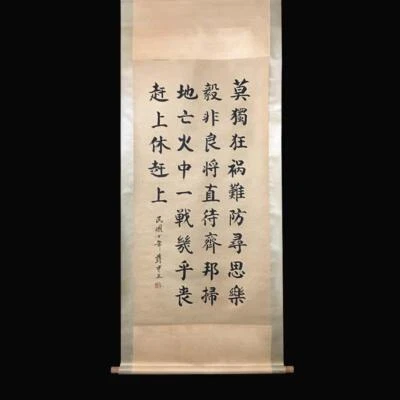 莫獨狂祸難防尋思樂
毅非良将直待齊邦掃
地亡火中一戰幾乎丧
赶上休赶上
民國十年